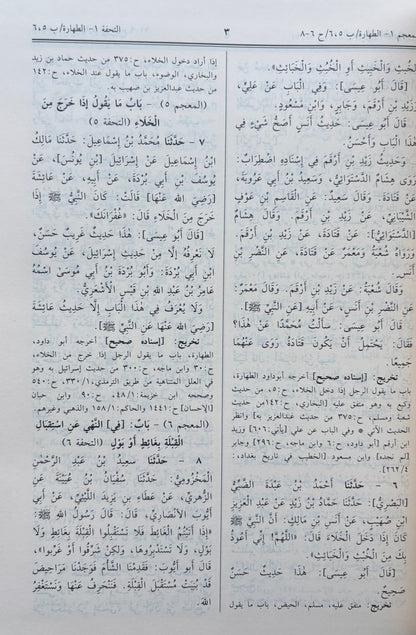 معجم ١- الطهارة/ب ٦،٥/ح ٦-٨
٣
التحفة ١- الطهارة/ب ٦،٥
الْخُبْثِ وَالْخَبِيثِ أَوِ الْخُبُثِ وَالْخَبَائِثِ».
[قَالَ أَبُو عِيسَى]: وَفِي الْبَابِ عَنْ عَلِيٍّ،
زَيْدِ بْنِ أَرْقَمَ، وَجَابِرٍ، وَابْنِ مَسْعُودٍ.
قَالَ أَبُو عِيسَى: حَدِيثُ أَنَسٍ أَصَحُّ شَيْءٍ فِي
هَذَا الْبَابِ وَأَحْسَنُ.
وَحَدِيثُ زَيْدِ بْنِ أَرْقَمَ فِي إِسْنَادِهِ اضْطِرَابٌ:
رَوَى هِشَامٌ الدَّسْتَوَائِيُّ، وَسَعِيدُ بْنُ أَبِي عَرُوبَةَ،
عَنْ قَتَادَةَ. وَقَالَ سَعِيدٌ: عَنِ الْقَاسِمِ بْنِ عَوْفٍ
الشَّيْبَانِيِّ، عَنْ زَيْدِ بْنِ أَرْقَمَ. وَقَالَ هِشَامٌ
الدَّسْتَوَائِيُّ: عَنْ قَتَادَةَ، عَنْ زَيْدِ بْنِ أَرْقَمَ.
وَرَوَاهُ شُعْبَةُ وَمَعْمَرٌ عَنْ قَتَادَةَ، عَنِ النَّضْرِ بْنِ
أَنَسٍ. فَقَالَ شُعْبَةُ: عَنْ زَيْدِ بْنِ أَرْقَمَ. وَقَالَ مَعْمَرٌ:
عَنِ النَّضْرِ بْنِ أَنَسٍ، عَنْ أَبِيهِ [عَنِ النَّبِيِّ ﷺ].
قَالَ أَبُو عِيسَى: سَأَلْتُ مُحَمَّدًا عَنْ هَذَا؟
فَقَالَ: يَحْتَمِلُ أَنْ يَكُونَ قَتَادَةُ رَوَى عَنْهُمَا
جَمِيعًا.
تخريج: [إسناده صحيح] أخرجه أبوداود الطهارة،
باب ما يقول الرجل إذا دخل الخلاء، ح:٥، من حديث
وكيع به وهو متفق عليه [البخاري، ح:١٤٢ من حديث
شعبة ومسلم، ح:٣٧٥ من حديث عبدالعزيز به] وانظر
الحديث الآتي ٥ وفي الباب عن علي [يأتي:٦٠٦] وزيد
ابن أرقم [أبو داود، ح:٦ وابن ماجه، ح:٢٩٦] وجابر
[لم نجده] وابن مسعود [الخطيب في تاريخ بغداد:
٦ - حَدَّثَنَا أَحْمَدُ بْنُ عَبْدَةَ الضَّبِّيُّ
[الْبَصْرِيُّ]: حَدَّثَنَا حَمَّادُ بْنُ زَيْدٍ عَنْ عَبْدِ الْعَزِيزِ
ابْنِ صُهَيْبٍ، عَنْ أَنَسِ بْنِ مَالِكٍ: أَنَّ النَّبِيَّ ﷺ
كَانَ إِذَا دَخَلَ الْخَلَاءَ، قَالَ: «اللَّهُمَّ! إِنِّي أَعُوذُ
بِكَ مِنَ الْخُبْثِ وَالْخَبَائِثِ».
[قَالَ أَبُو عِيسَى]: هَذَا حَدِيثٌ حَسَنٌ
صَحِيحٌ.
تخريج: متفق عليه، مسلم، الحيض، باب ما يقول
إذا أراد دخول الخلاء، ح:٣٧٥ من حديث حماد بن زيد
والبخاري، الوضوء، باب ما يقول عند الخلاء، ح:١٤٢
من حديث عبدالعزيز بن صهيب به.
(المعجم ٥) - بَابُ مَا يَقُولُ إِذَا خَرَجَ مِنَ
الْخَلَاءِ (التحفة ٥)
٧ - حَدَّثَنَا مُحَمَّدُ بْنُ إِسْمَاعِيلَ: حَدَّثَنَا مَالِكُ
ابْنُ إِسْمَاعِيلَ عَنْ إِسْرَائِيلَ [بْنِ يُونُسَ]، عَنْ
يُوسُفَ بْنِ أَبِي بُرْدَةَ، عَنْ أَبِيهِ، عَنْ عَائِشَةَ
[رَضِيَ اللهُ عَنْهَا] قَالَتْ: كَانَ النَّبِيُّ ﷺ إِذَا
خَرَجَ مِنَ الْخَلَاءِ قَالَ: «غُفْرَانَكَ».
[قَالَ أَبُو عِيسَى]: هَذَا حَدِيثٌ غَرِيبٌ حَسَنٌ،
لَا نَعْرِفُهُ إِلَّا مِنْ حَدِيثِ إِسْرَائِيلَ، عَنْ يُوسُفَ
ابْنِ أَبِي بُرْدَةَ: وَأَبُو بُرْدَةَ بْنُ أَبِي مُوسَى اسْمُهُ
عَامِرُ بْنُ عَبْدِ اللهِ بْنِ قَيْسٍ الْأَشْعَرِيُّ.
وَلَا يُعْرَفُ فِي هَذَا الْبَابِ إِلَّا حَدِيثُ عَائِشَةَ
[رَضِيَ اللهُ عَنْهَا عَنِ النَّبِيِّ ﷺ].
تخريج: [إسناده صحيح] أخرجه أبو داود،
الطهارة، باب ما يقول الرجل إذا خرج من الخلاء،
ح:٣٠ وابن ماجه، ح:٣٠٠ من حديث إسرائيل به وهو
في العلل المتناهية من طريق الترمذي،١/٣٣٠، ح:٥٤٠
وصححه ابن خزيمة:١/٤٨، ح:٩٠ وابن حبان
[الإحسان] ح:١٤٤١ والحاكم:١/١٥٨ والذهبي وغيرهم.
(المعجم ٦) - بَابٌ: [فِي] النَّهْيِ عَنِ اسْتِقْبَالِ
الْقِبْلَةِ بِغَائِطٍ أَوْ بَوْلٍ (التحفة ٦)
٨ - حَدَّثَنَا سَعِيدُ بْنُ عَبْدِ الرَّحْمَنِ
الْمَخْزُومِيُّ: حَدَّثَنَا سُفْيَانُ بْنُ عُيَيْنَةَ عَنِ
الزُّهْرِيِّ، عَنْ عَطَاءِ بْنِ يَزِيدَ اللَّيْثِيِّ، عَنْ أَبِي
أَيُّوبَ الْأَنْصَارِيِّ، قَالَ: قَالَ رَسُولُ اللهِ ﷺ:
«إِذَا أَتَيْتُمُ الْغَائِطَ فَلَا تَسْتَقْبِلُوا الْقِبْلَةَ بِغَائِطٍ وَلَا
بَوْلٍ، وَلَا تَسْتَدْبِرُوهَا، وَلَكِنْ شَرِّقُوا أَوْ غَرِّبُوا».
قَالَ أَبُو أَيُّوبَ: فَقَدِمْنَا الشَّامَ فَوَجَدْنَا مَرَاحِيضَ
قَدْ بُنِيَتْ مُسْتَقْبَلَ الْقِبْلَةِ. فَنَنْحَرِفُ عَنْهَا وَنَسْتَغْفِرُ
اللهَ.